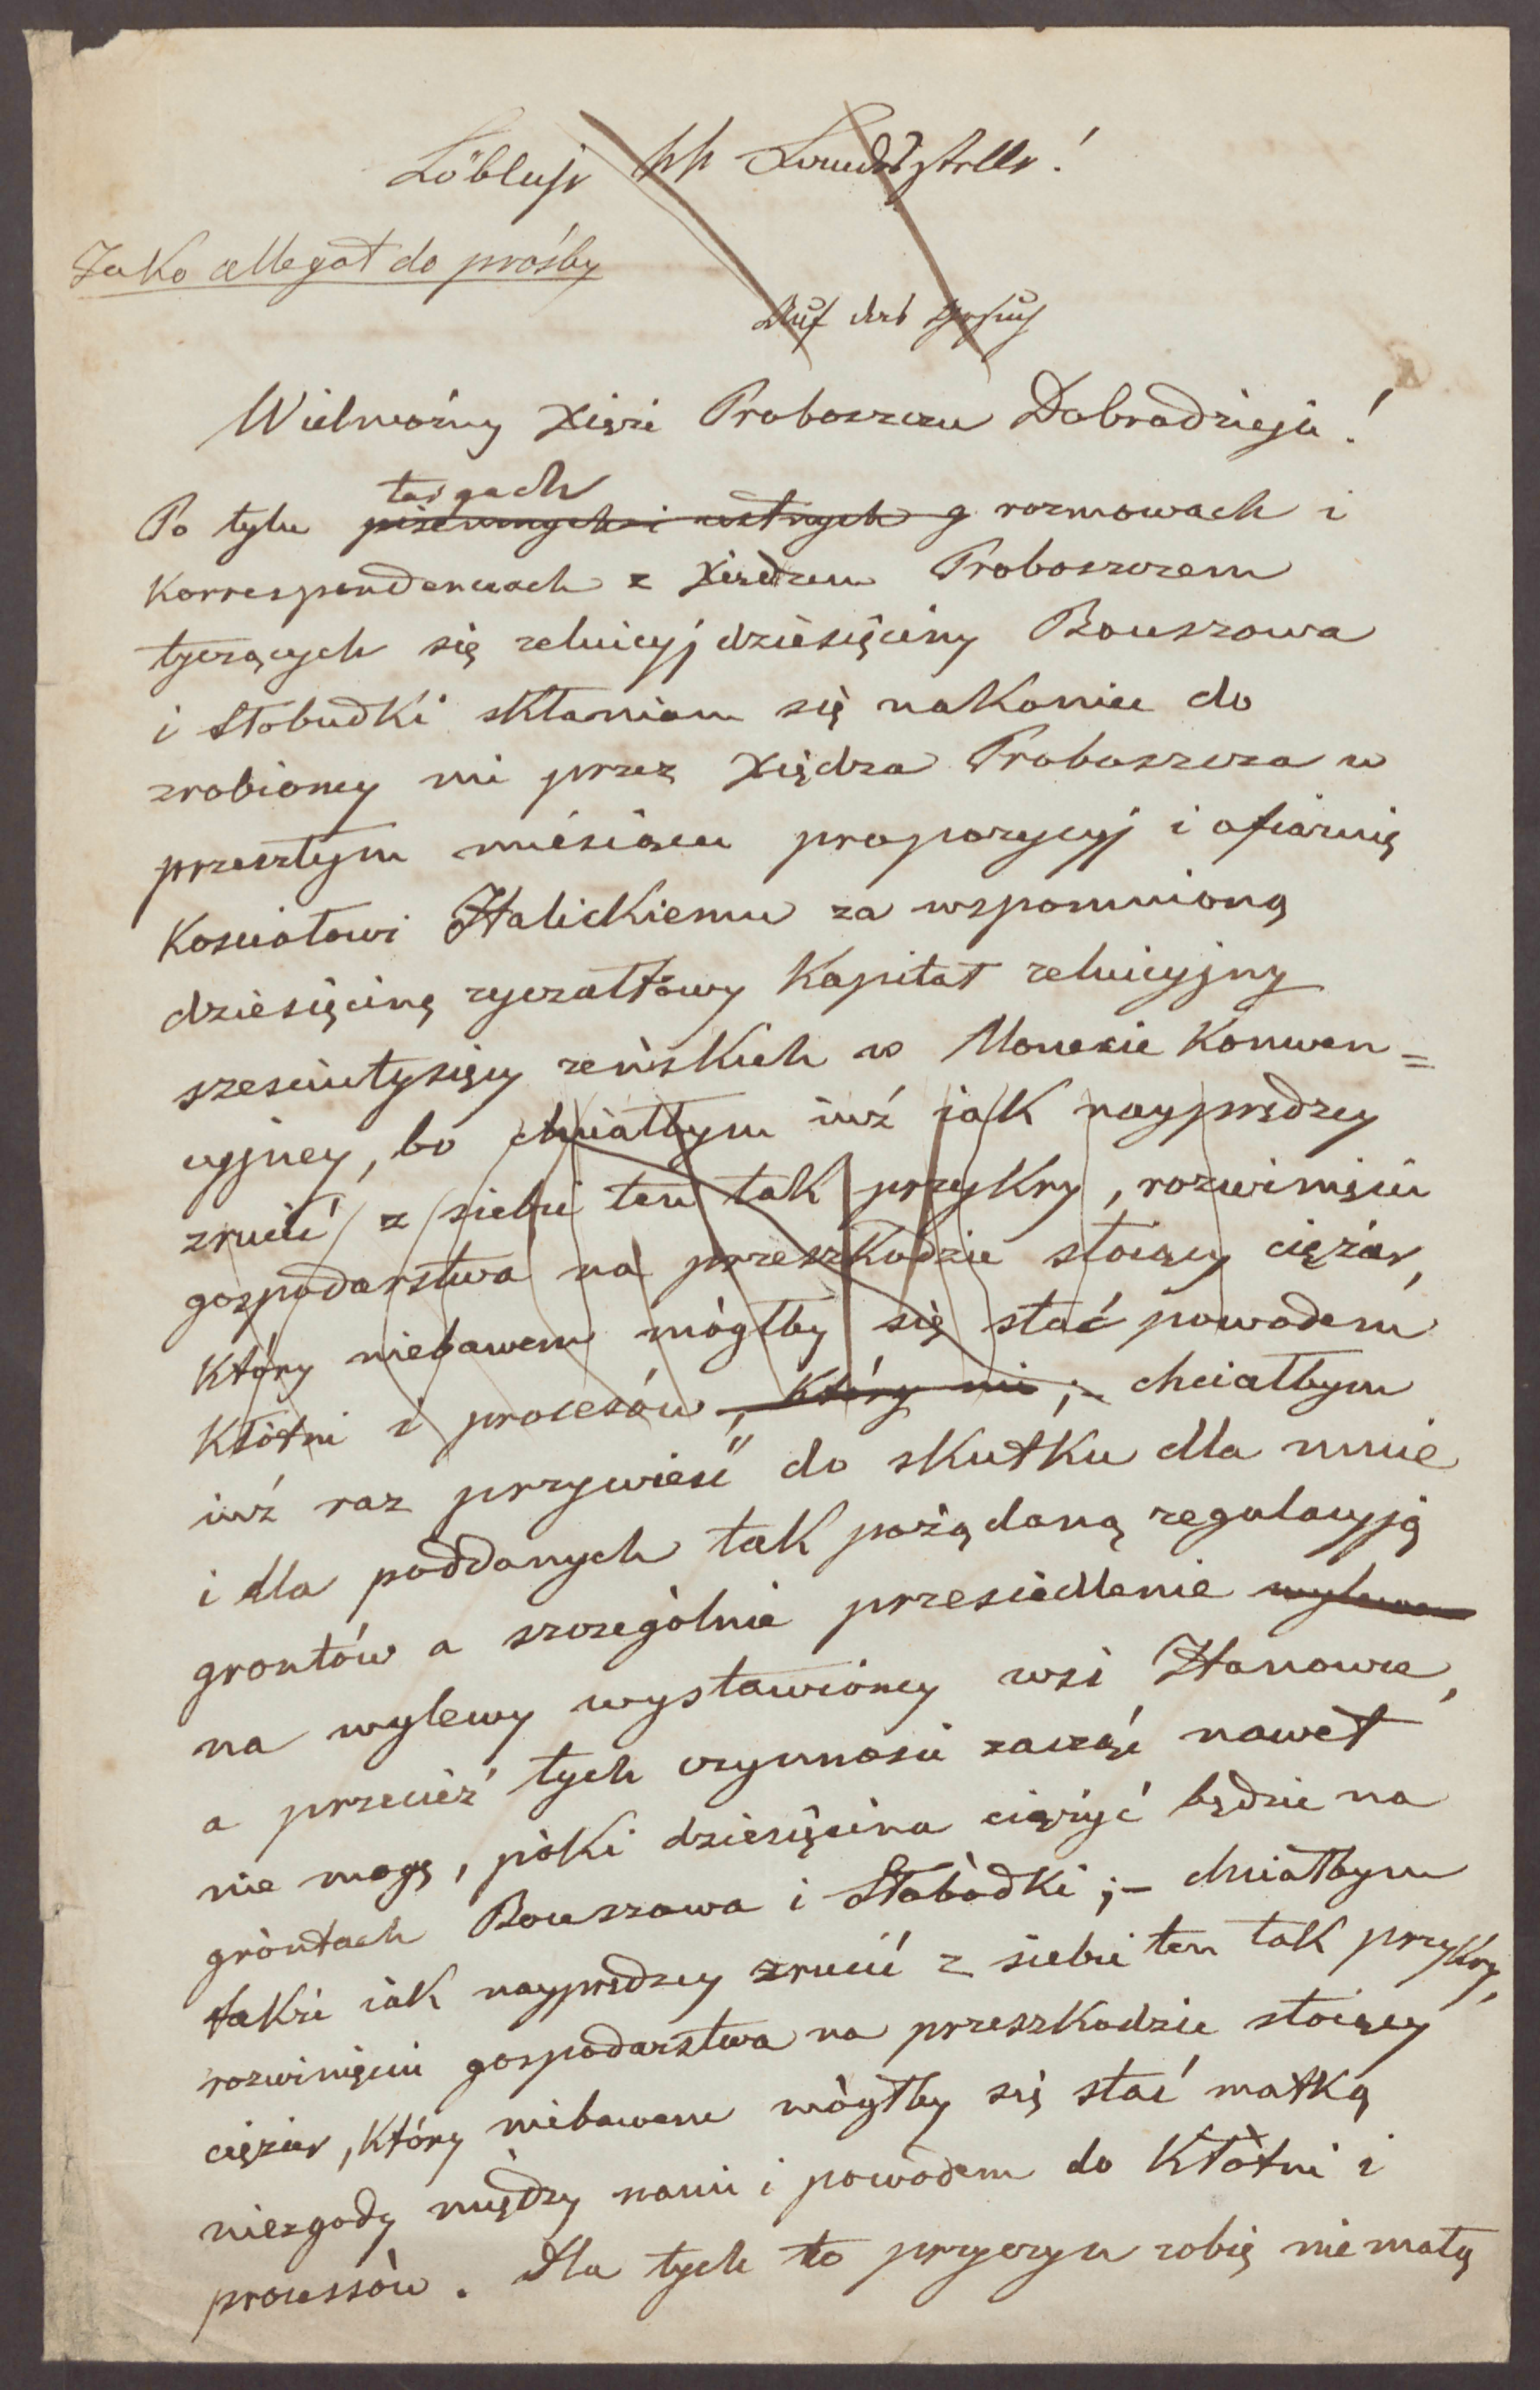 Löbliche kk Landesstelle!
Jako allegat do prośby
Auf das Gesuch
Wielmożny Xięże Proboszczu Dobrodzieju!
targach
Po tylu pisemnych i ustnych rozmowach i
Korrespondencuach z Xiędzem Proboszczem
tyczących się reluicyj dziesięciny Bouszowa
i Słobudki skłaniam się nakoniec do
zrobioney mi przez Xiędza Proboszcza w
przeszłym miesiącu propozycyj i ofiaruię
Kosciołowi Halickiemu za wspomnioną
dziesięcinę ryczałtowy Kapitał reluicyjny
szesciutysięcy reńskich w Monecie Konwen=
cyjney, bo chciałbym iuż iak nayprędzey
zrucić z siebie ten tak przykry, rozwinięciu
gospodarstwa na przeszkodzie stoiący ciężar,
Który niebawem mógłby się stać powodem
Kłótni i procesów, który mi ;- chciałbym
iuż raz przywieść do skutku dla mnie
i dla poddanych tak pożądaną regulacyją
grontów a szczególnie przesiedlenie wylewem
na wylewy wystawioney wsi Hanowce,
a przecież tych czynnosci zacząć nawet
nie mogę, póki dziesięcina ciężyć będzie na
gróntach Bouszowa i Słobódki ;- chciałbym
także iak nayprędzey zrucić z siebie ten tak przykry,
rozwinięciu gospodarstwa na przeszkodzie stoiący
ciężar, który niebawem mógłby się stać matką
niezgody między nami i powodem do Kłótni i
processów. Dla tych to przyczyn robię nie małą